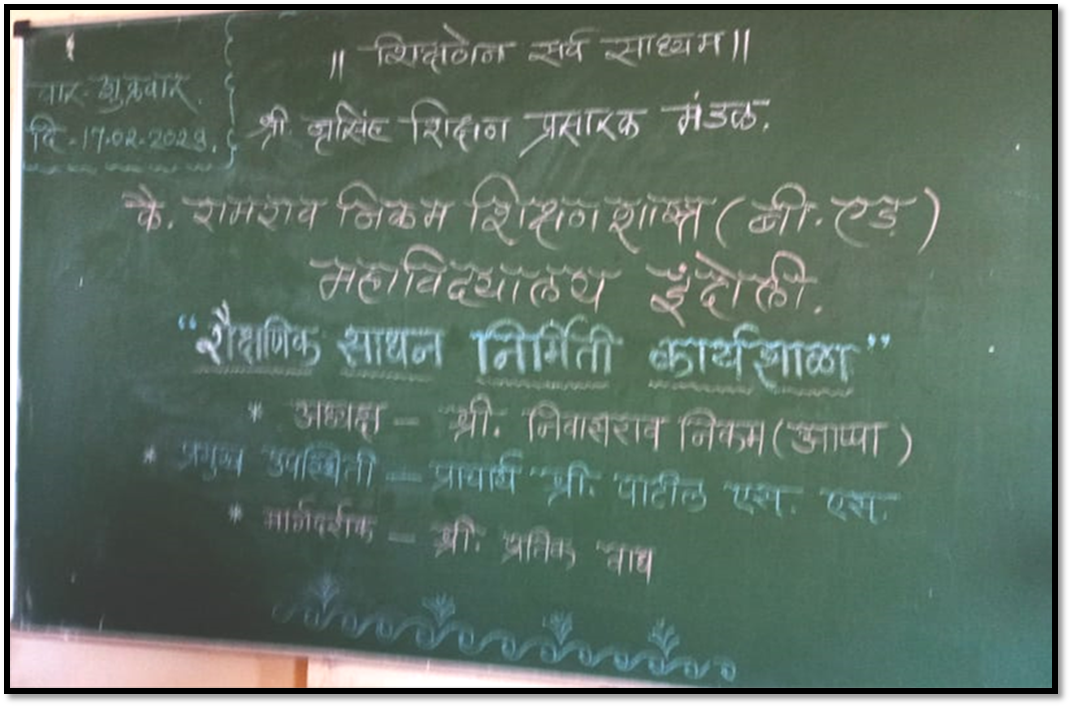 ॥ शिक्षणेन सर्व साध्यम॥
वार- शुक्रवार.
दि -17.02.2023.
श्री. नृसिंह शिक्षण प्रसारक मंडळ.
कै. रामराव निकम शिक्षणशास्त्र (बी. एड)
महाविद्यालय इंदोली.
"शैक्षणिक साधन निर्मिती कार्यशाळा"
* अध्यक्ष - श्री. निवासराव निकम (आप्पा)
* प्रमुख उपस्थिती - प्राचार्य श्री. पाटील एस. एस.
* मार्गदर्शक - श्री. प्रतिक वाघ